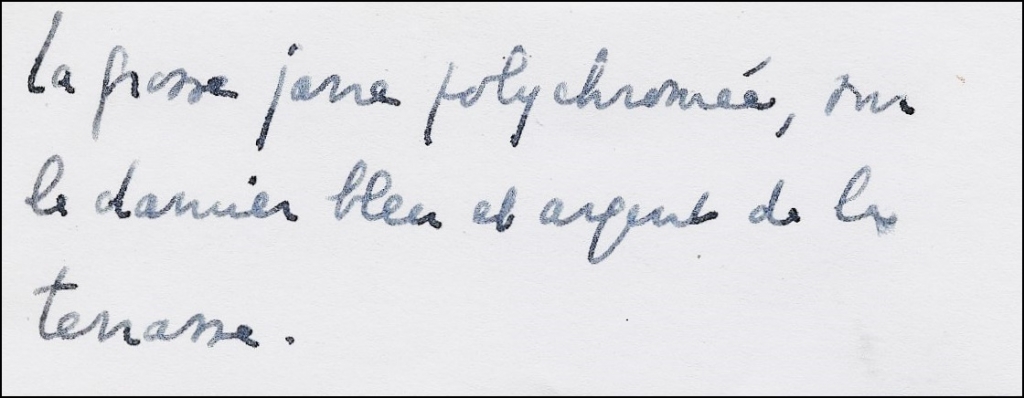 La grosse jarre polychromée, sur
le damier bleu et argent de la
terrasse.